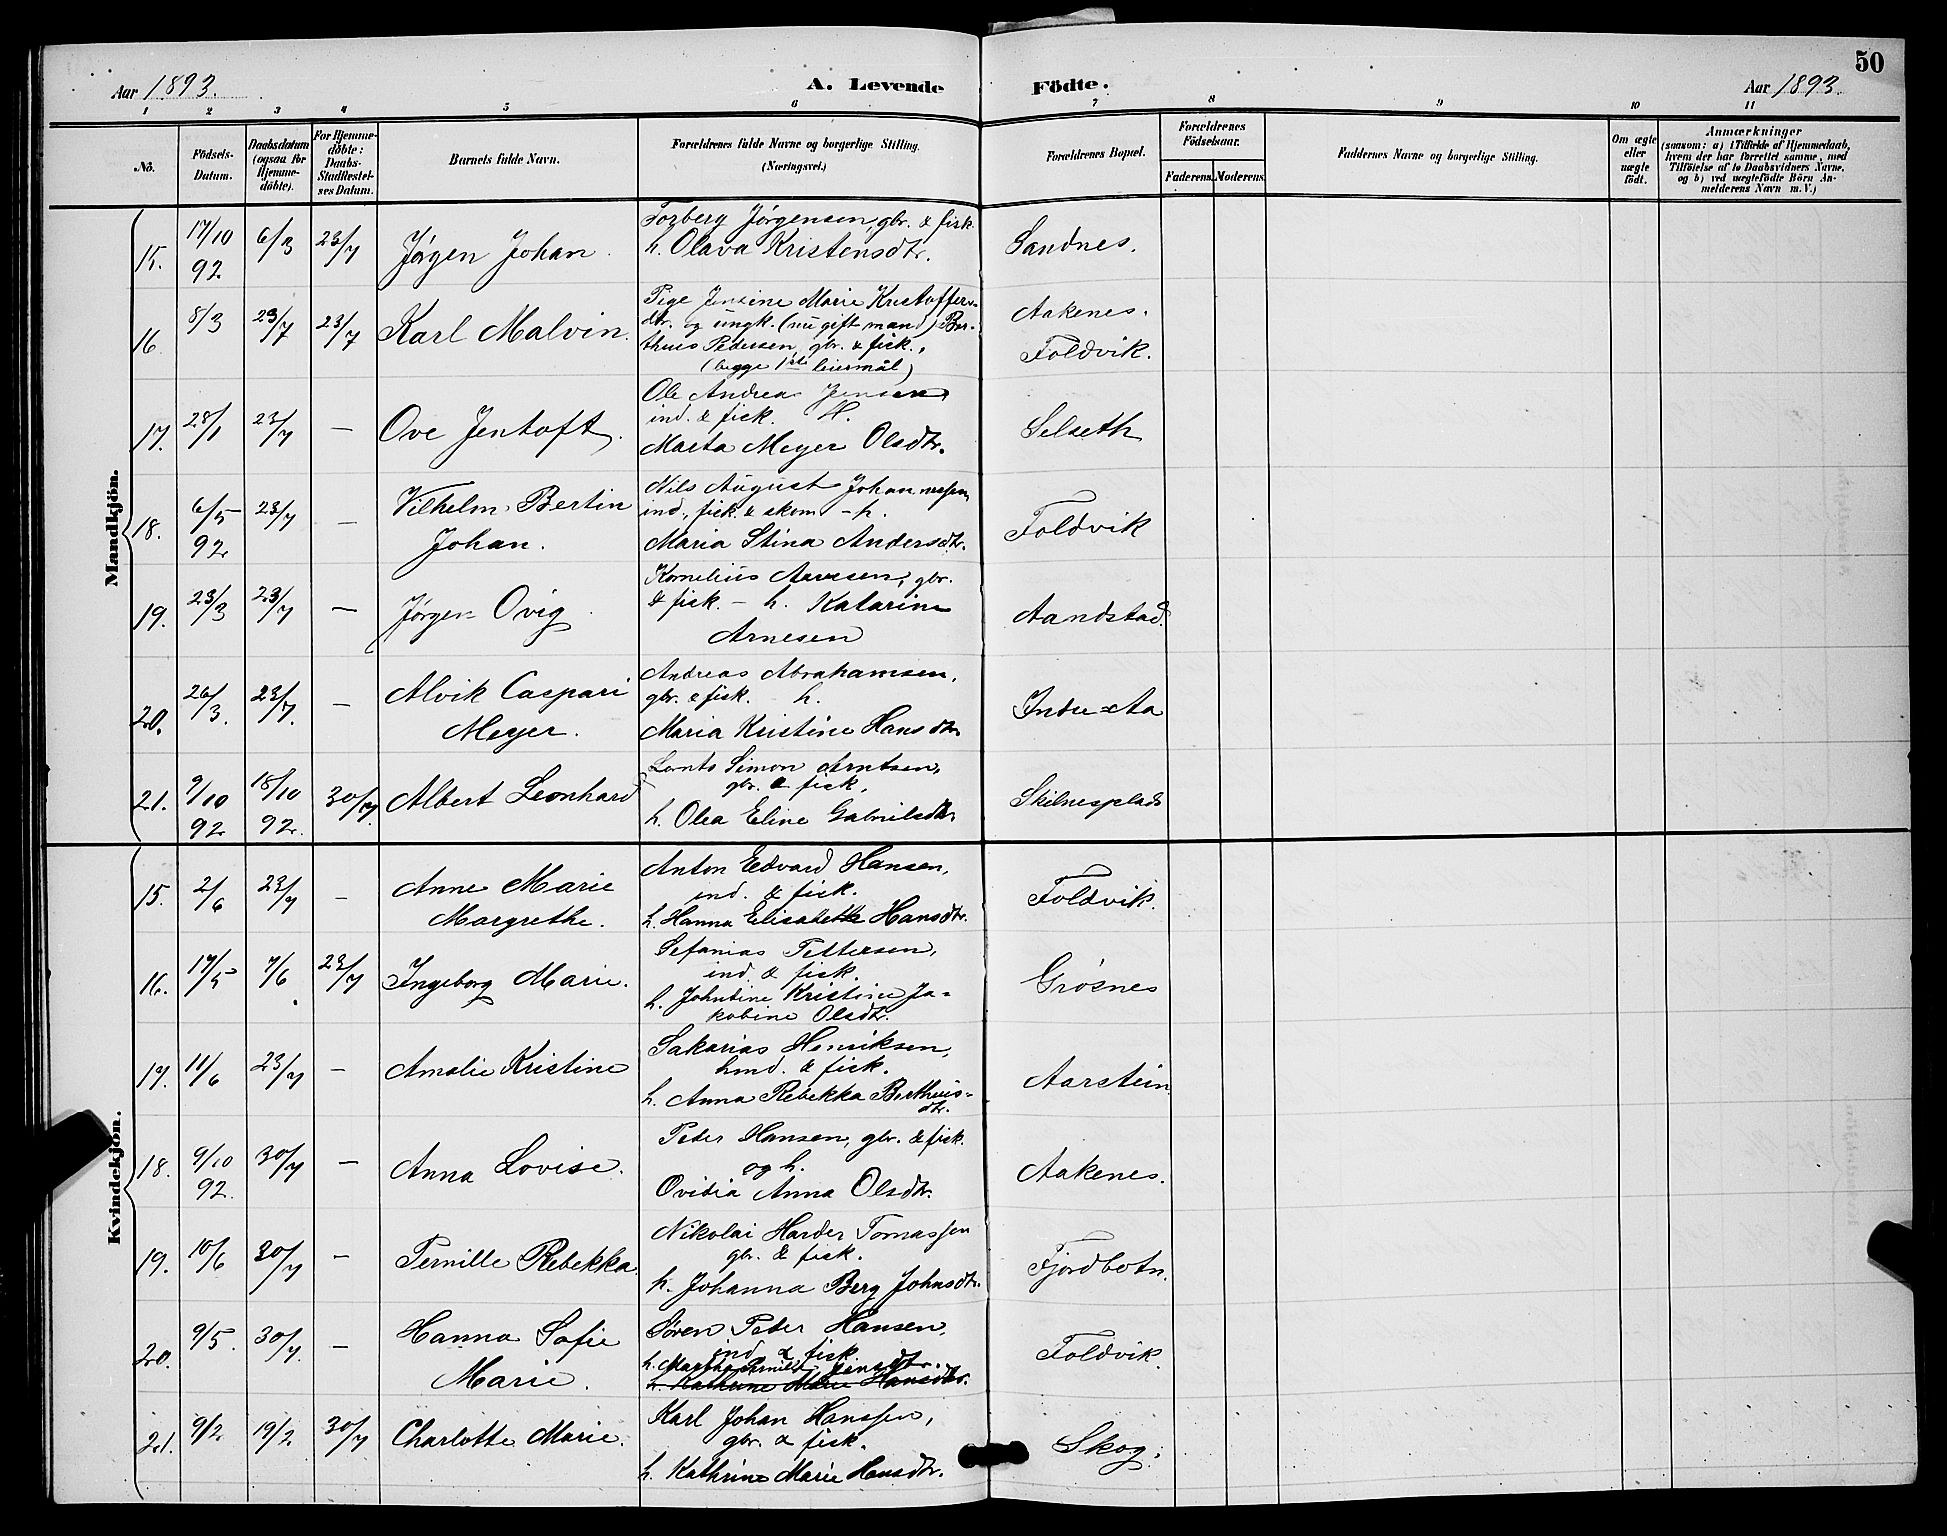 50
Aar 1893.
A. Levende
Födte.
Aar 1893.
1 2 3 4 5 6 7 8 9 10 11
No.
Födsels-
Datum.
Daabsdatum
(ogsaa for
Hjemme-
döbte).
For Hjemme-
döbte:
Daabs-
Stadfæstel-
ses Datum.
Barnets fulde Navn.
Forældrenes fulde Navne og borgerlige Stilling.
(Næringsvei.)
Forældrenes Bopæl.
Forældrenes
Födselsaar.
Faderens. Moderens.
Faddernes Navne og borgerlige Stilling.
Om ægte
eller
uægte
födt.
Anmærkninger
(saasom: a) i Tilfælde af Hjemmedaab,
hvem der har forrettet samme, med
Tilföielse af to Daabsvidners Navne,
og b) ved uægtefödte Börn An-
melderens Navn m. V.)
Mandkjön.
15. 17/10 92 6/3 23/7 Jørgen Johan.
Torberg Jørgensen, gbr. & fisk.
h. Olava Kristensdtr.
Sandnes.
16. 8/3 23/7 23/7 Karl Malvin.
Pige Jensine Marie Kristoffers-
dtr. og ungk. (nu gift mand) Ber-
theus Pedersen, gbr. & fisk.,
(begge 1ste leiermål)
Aakenes.
Foldvik.
17. 28/1 23/7 — Ove Jentoft.
Ole Andreas Jensen,
ind. & fisk. H.
Marta Meyer Olsdtr.
Selseth
18. 6/5 92 23/7 — Vilhelm Bertin
Johan.
Nils August Johannessen,
ind., fisk. & skom - h.
Maria Stina Andersdtr.
Foldvik
19. 23/3 23/7 — Jørgen Ovig.
Kornelius Arnesen, gbr.
& fisk. — h. Katarine
Arnesen
Aandstad.
20. 26/3. 23/7. — Alvik Caspari
Meyer.
Andreas Abrahamsen,
gbr. & fisk. - h.
Maria Kristine Hansdtr.
Indre-Aa
21. 9/10 92 18/10 92. 30/7. Albert Leonhard
Lornts Simon Arntsen,
gbr. & fisk.
h. Olea Eline Gabrielsdtr.
Skilnesplads
Kvindekjön.
15. 2/6 23/7 — Anne Marie
Margrethe.
Anton Edvard Hansen,
ind. & fisk.
h. Hanna Elisabeth Hansdtr.
Foldvik.
16. 17/5 7/6 23/7 Ingeborg Marie.
Sefanias Pettersen,
ind. & fisk.
h. Johntine Kristine Ja-
kobine Olsdtr.
Grøsnes
17. 11/6 23/7 — Amalie Kristine
Sakarias Henriksen,
hmd. & fisk.
h. Anna Rebekka Bertheus-
dtr.
Aarstein
18. 9/10 92. 30/7 — Anna Lovise.
Peder Hansen, gbr. & fisk.
og h.
Ovidia Anna Olsdtr.
Aakenes.
19. 10/6 30/7 — Pernille Rebekka.
Nikolai Harder Tomassen
gbr. & fisk.
h. Johanna Berg Johnsdtr.
Fjordbotn.
20. 9/5. 30/7. — Hanna Sofie
Marie.
Søren Peder Hansen,
ind. & fisk
h. Martha Pernille Jensdtr.
h. Kathrine Marie Hansdtr.
Foldvik.
21. 9/2. 19/2. 30/7 Charlotte Marie.
Karl Johan Hanssen,
gbr. & fisk.
h. Kathrine Marie Hansdtr.
Skog.